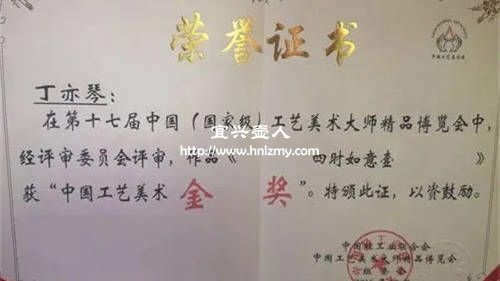 荣誉证书
丁亦琴：
在第十七届中国（国家级）工艺美术大师精品博览会中，
经评审委员会评审，作品《 四时如意壶 》
获“中国工艺美术 金 奖”。特颁此证，以资鼓励。
宜兴壶人
http://www.hnlzmy.com
中国轻工业联合会
中国工艺美术大师精品博览会
组委会